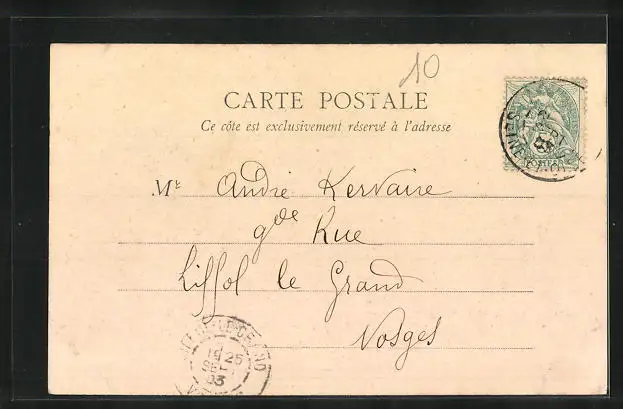 10
CARTE POSTALE
Ce côte est exclusivement réservé à l'adresse
POSTES
Mr André Kervaire
gde Rue
Liffol le Grand
Vosges
LE-GRAND
25
03